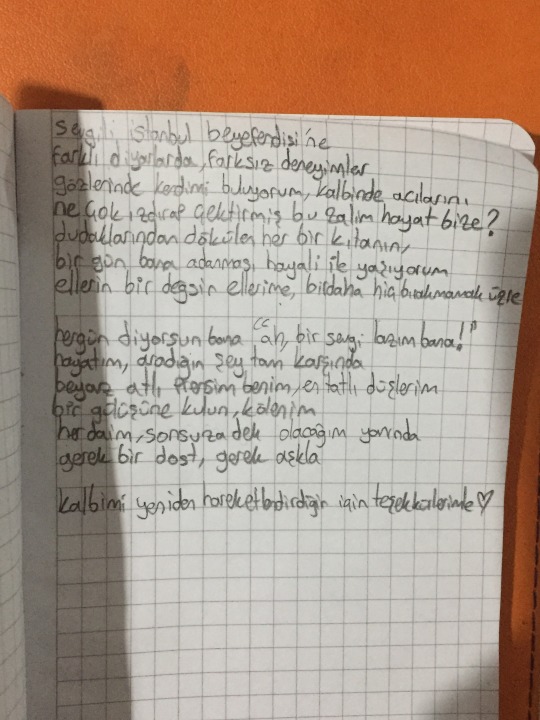 sevgili istanbul beyefendisi'ne
farklı diyarlarda, farksız deneyimler
gözlerinde kendimi buluyorum, kalbinde acılarını
ne çok ızdırap çektirmiş bu zalim hayat bize?
dudaklarından dökülen her bir kıtanın,
bir gün bana adanması hayali ile yaşıyorum
ellerin bir değsin ellerime, birdaha hiç bırakmamak üzre
hergün diyorsun bana "ah, bir sevgi lazım bana!"
hayatım, aradığın şey tam karşında
beyaz atlı prensim benim, en tatlı düşlerim
bir gülüşüne kulun, kölenim
her daim, sonsuza dek olacağım yanında
gerek bir dost, gerek aşkla
kalbimi yeniden hareketlendirdiğin için teşekkürlerimle♡